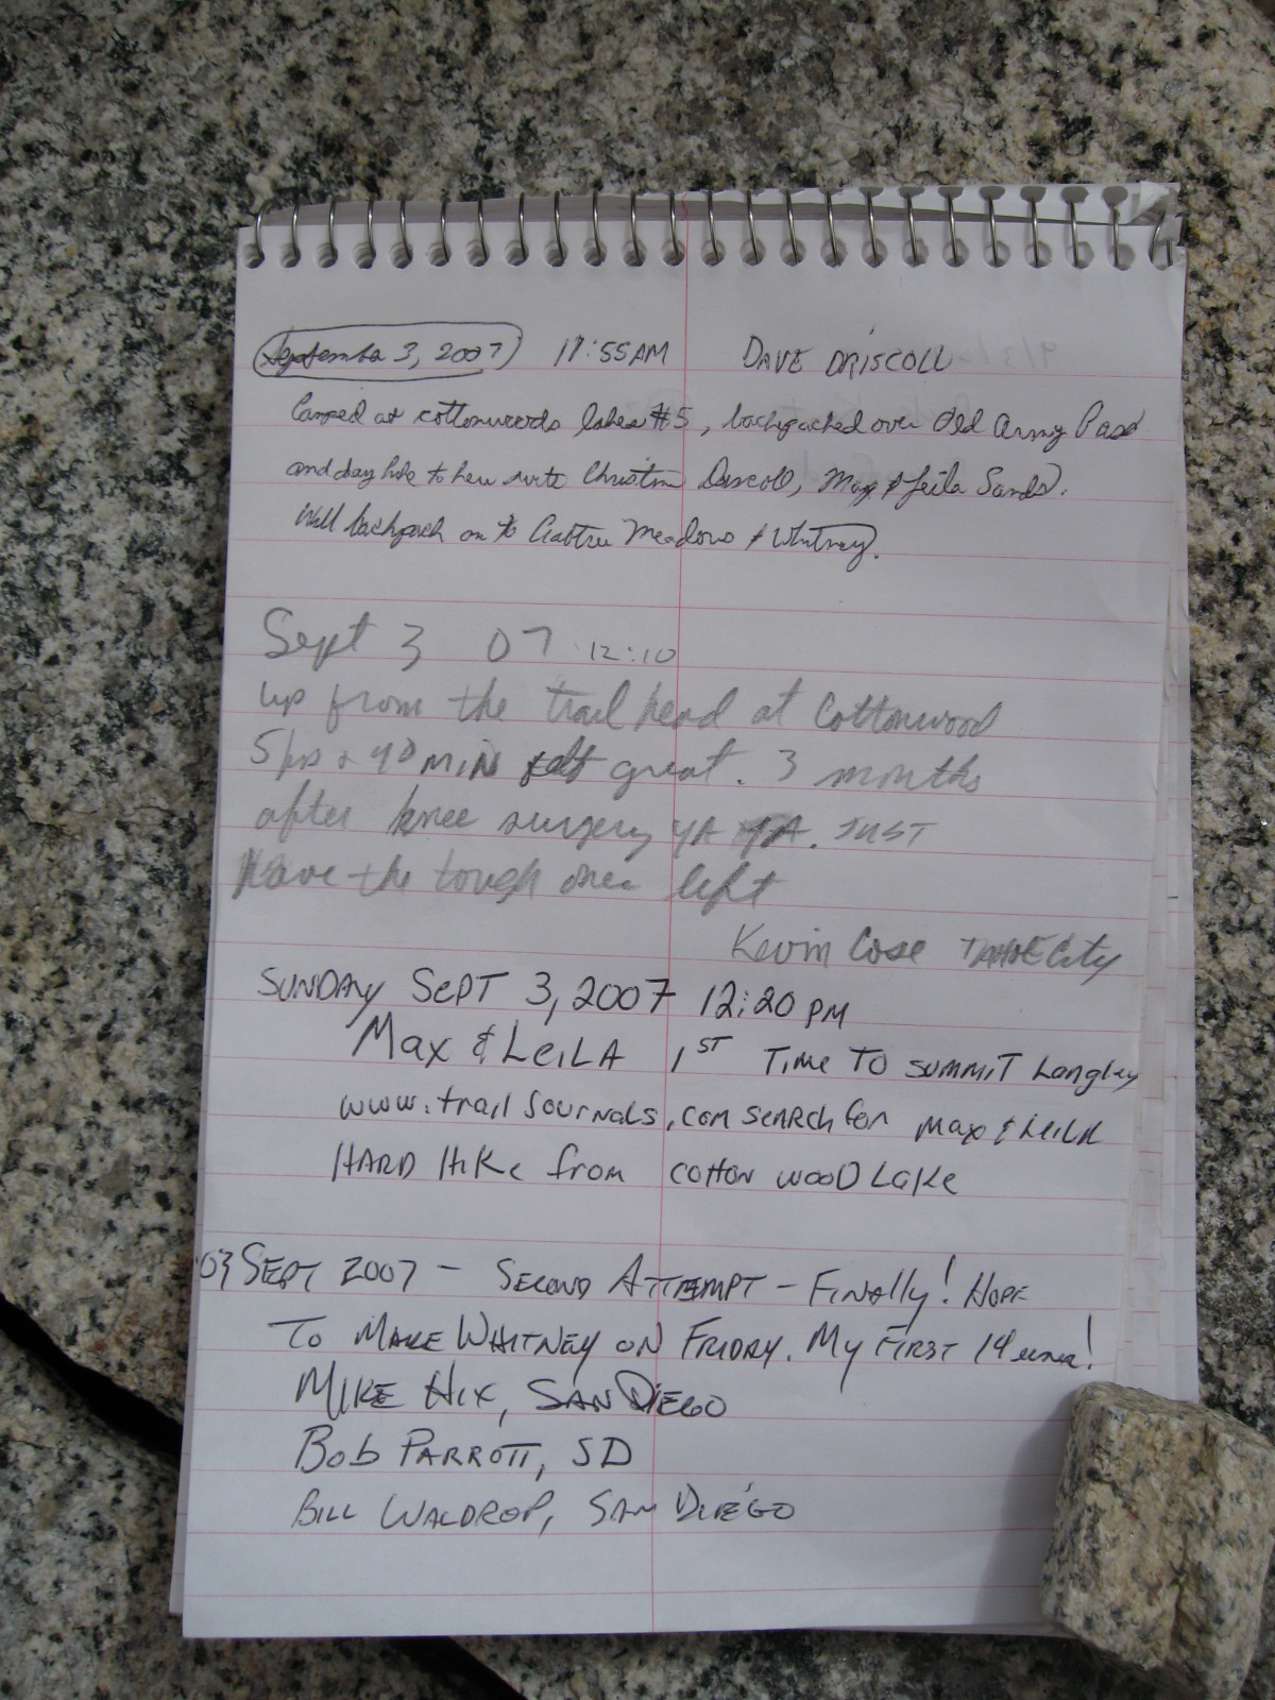 September 3, 2007 11:55AM DAVE DRISCOLL
Camped at cottonwoods lakes #5, backpacked over Old Army Pass
and day hike to here with Christin Driscoll, Max & Leila Sands.
Will backpack on to Crabtree Meadows & Whitney.
Sept 3 07 12:10
up from the trail head at Cottonwood
5 hrs & 40 MIN felt great. 3 months
after knee surgery YA YA. JUST
Have the tough ones left
Kevin Case TAHOE City
SUNDAY SEPT 3, 2007 12:20 PM
Max & LEILA 1ST TIME TO SUMMIT Langley
www.trailJournals.com SEARCH for Max & LEILA
HARD HIKE from COTTON WOOD LAKE
03 SEPT 2007 - SECOND ATTEMPT - FINALLY! HOPE
TO MAKE WHITNEY ON FRIDAY. MY FIRST 14eener!
MIKE HIX, SAN DIEGO
BOB PARROTT, SD
BILL WALDROP, SAN DIEGO